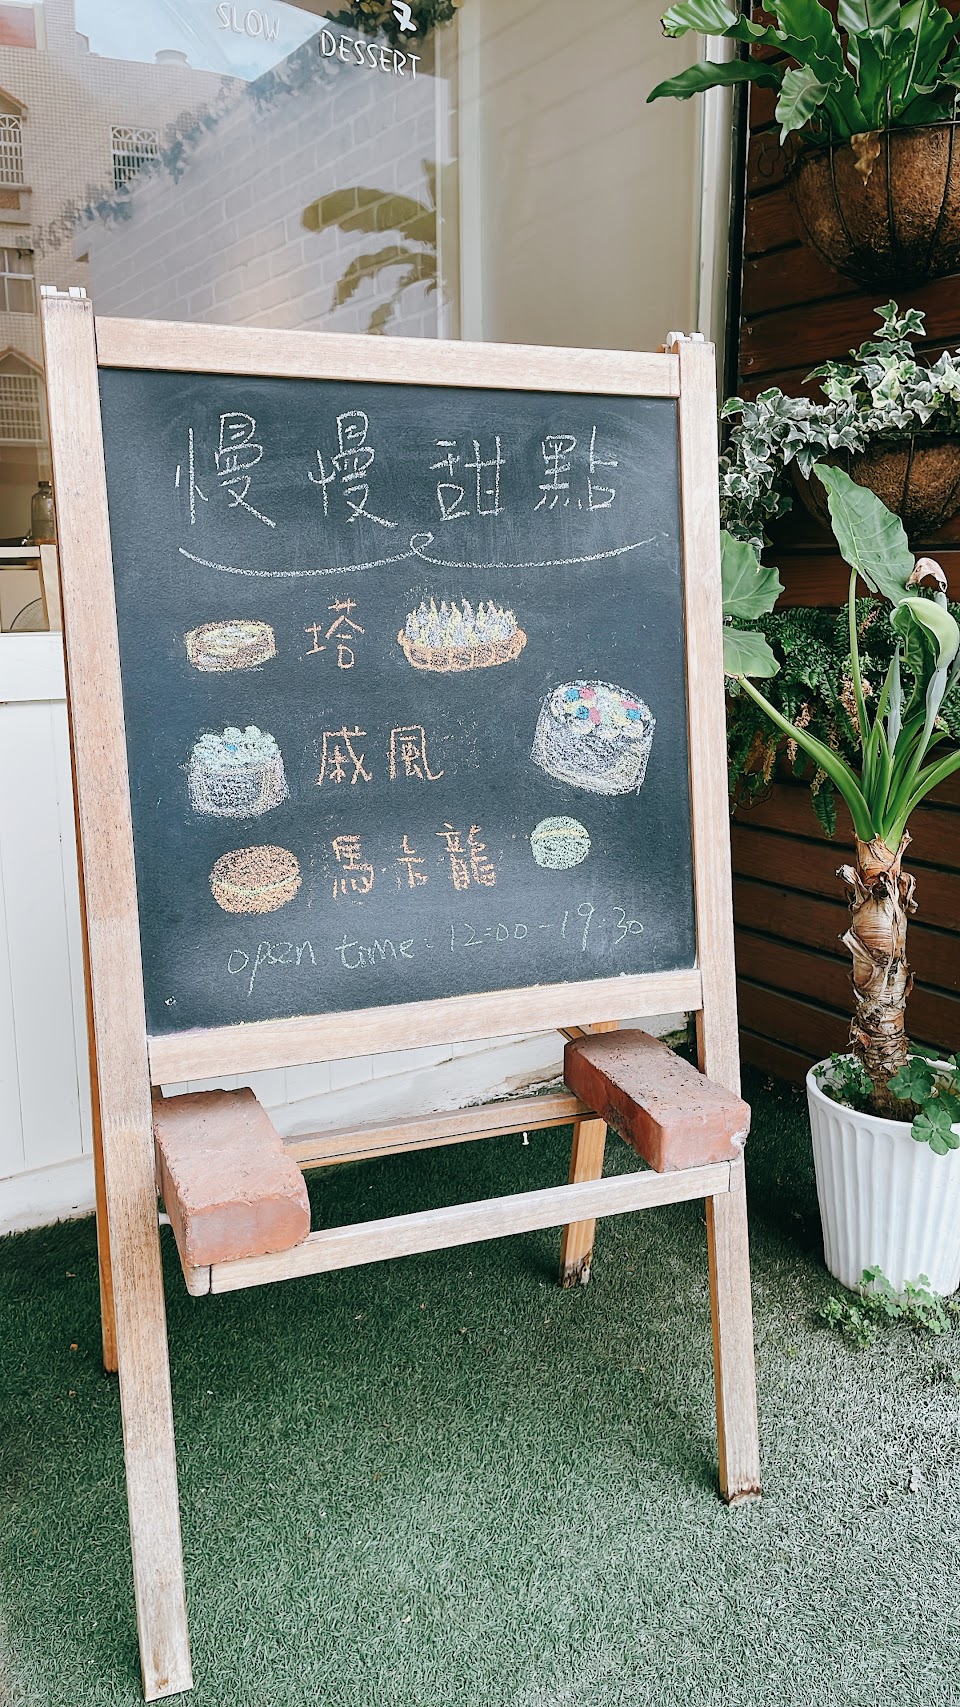 SLOW
DESSERT
慢慢甜點
塔
戚風
馬卡龍
open time: 12:00-19:30